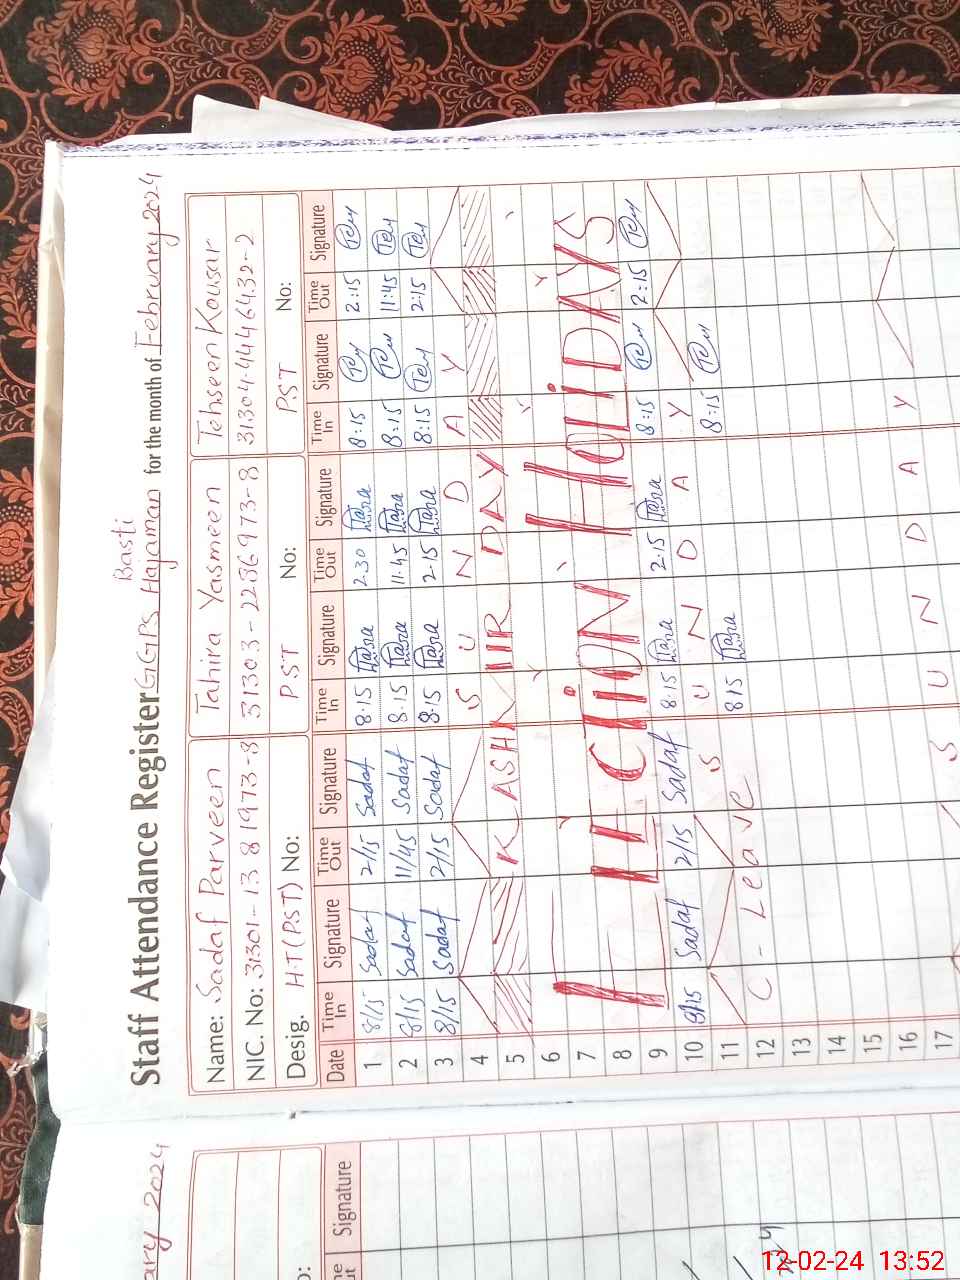 Basti
Staff Attendance Register GGPS Hajaman for the month of February 2024
Name: Sadaf Parveen Tahira Yasmeen Tehseen Kousar
NIC. No: 31301-1381973-8 31303-2286973-8 31304-4446432-2
Desig. HT(PST) No: PST No: PST No:
Date Time In Signature Time Out Signature Time In Signature Time Out Signature Time In Signature Time Out Signature
1 8/15 Sadaf 2/15 Sadaf 8.15 2.30 8:15 2:15
2 8/15 Sadaf 11/45 Sadaf 8.15 11:45 8:15 11:45
3 8/15 Sadaf 2/15 Sadaf 8.15 2.15 8:15 2:15
4 S U N D A Y
5 KASHMIR DAY
6
7 ELECTION HOLIDAYS
8
9 8/15 Sadaf 2/15 Sadaf 8.15 2.15 8:15 2:15
10 S U N D A Y
11 C - Leave 8 15 8:15
12
13
14
15
16
17 S U N D A Y
ary 2024
o:
Signature
12-02-24 13:52